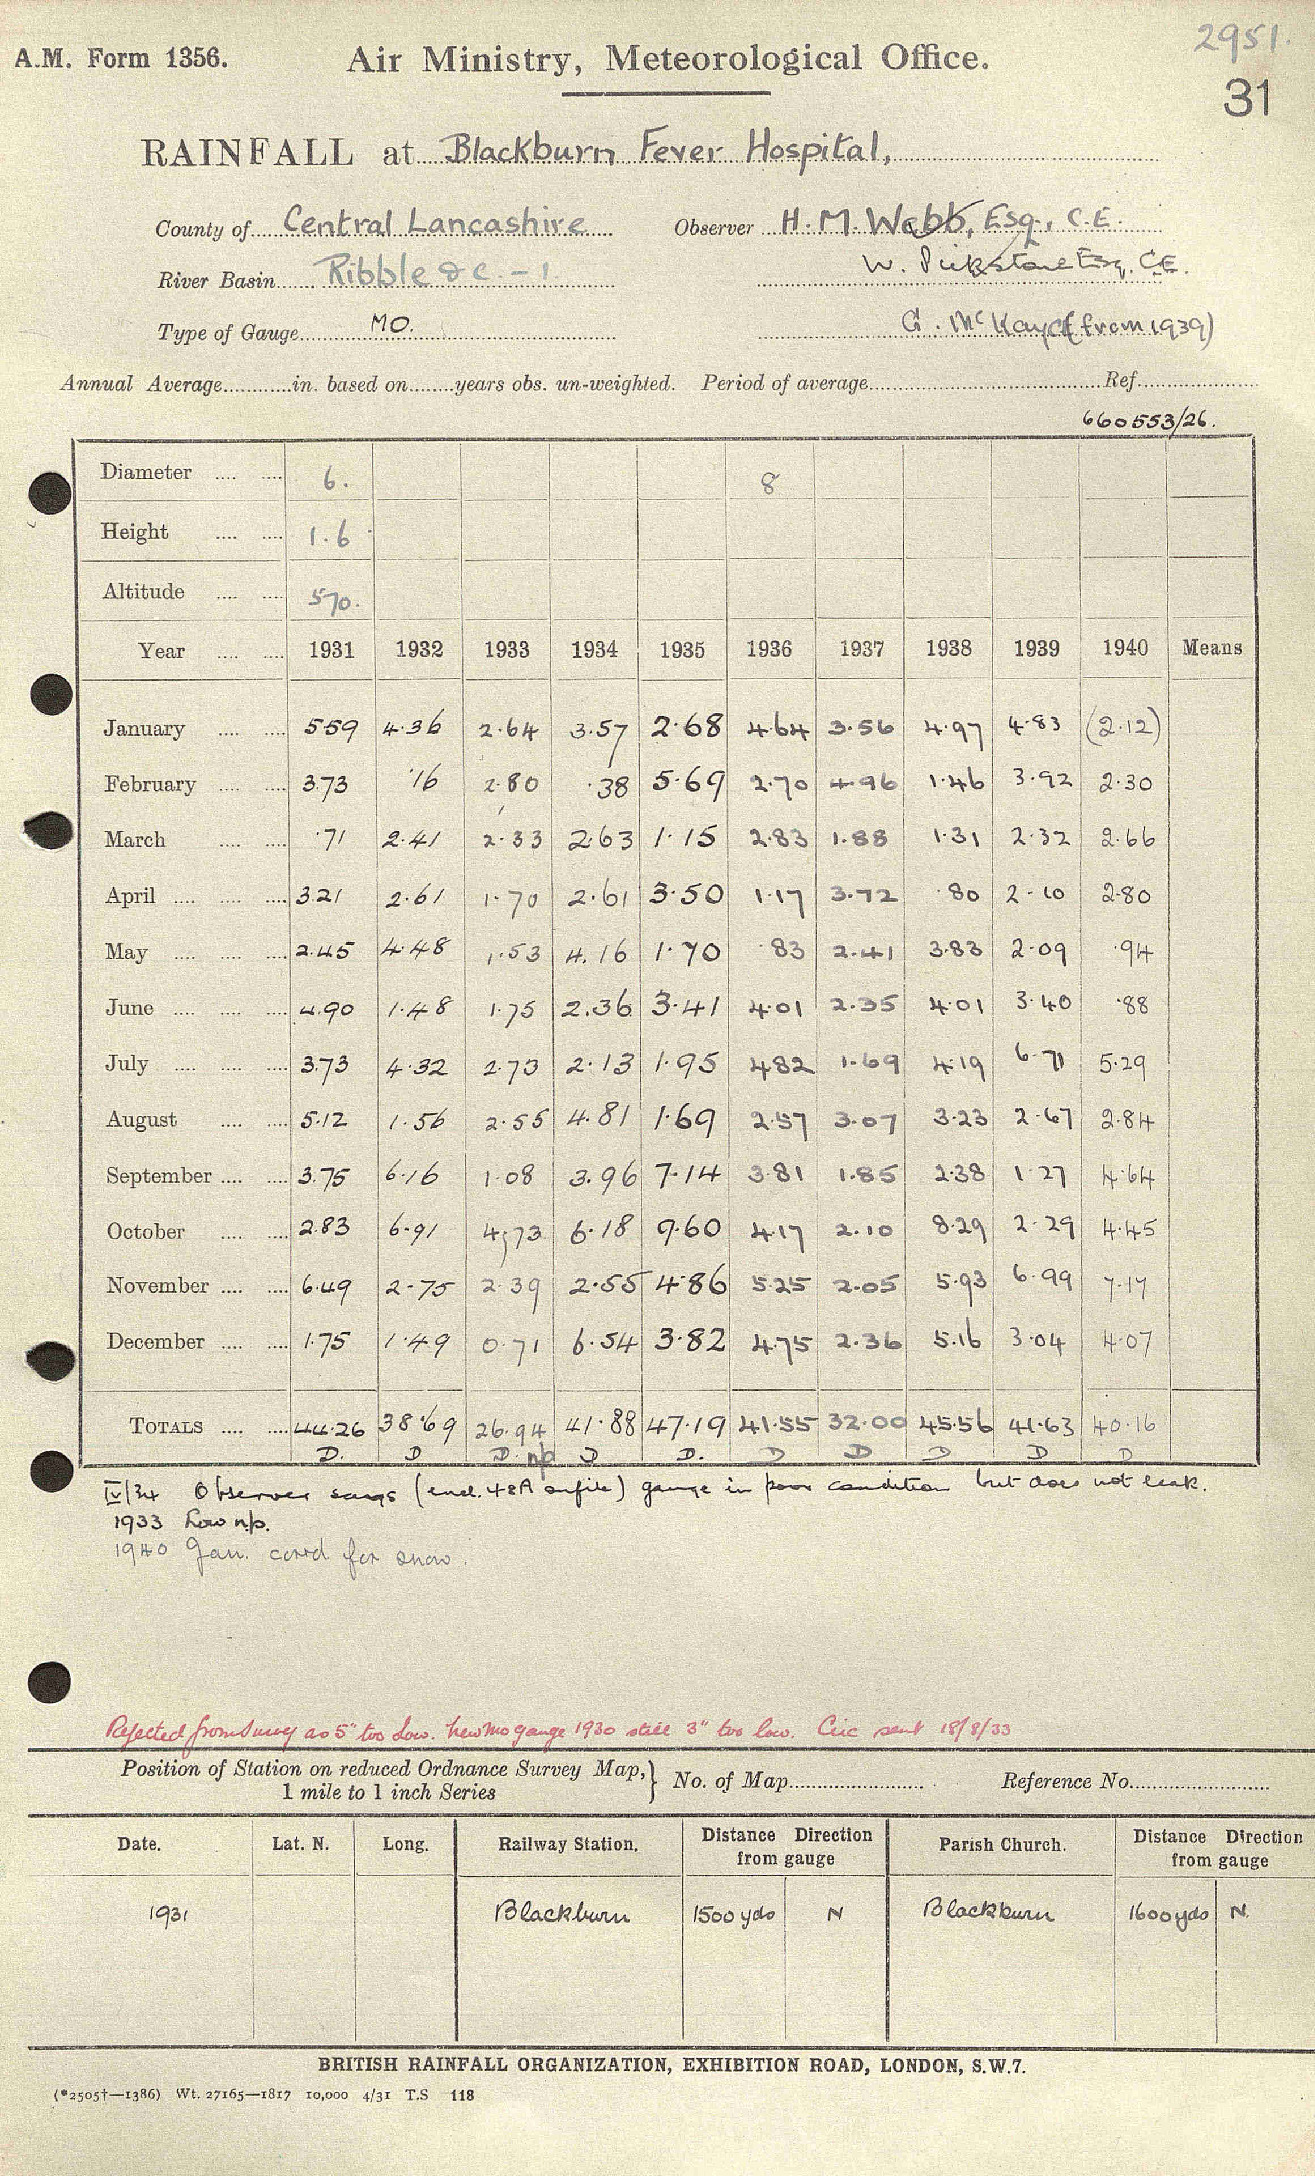 2951.
A.M. Form 1356. Air Ministry, Meteorological Office.
31
RAINFALL at Blackburn Fever Hospital,
County of Central Lancashire Observer H. M. Webb, Esq., C.E.
River Basin Ribble &c. - 1. W. Pickstone Esq. C.E.
Type of Gauge MO. G. McKay (from 1939)
Annual Average in. based on years obs. un-weighted. Period of average Ref.
660553/26.
Diameter 6. 8
Height 1.6
Altitude 570.
Year 1931 1932 1933 1934 1935 1936 1937 1938 1939 1940 Means
January 5.59 4.36 2.64 3.57 2.68 4.64 3.56 4.97 4.83 (2.12)
February 3.73 .16 2.80 .38 5.69 2.70 4.96 1.46 3.92 2.30
March .71 2.41 2.33 2.63 1.15 2.83 1.88 1.31 2.32 2.66
April 3.21 2.61 1.70 2.61 3.50 1.17 3.72 .80 2.10 2.80
May 2.45 4.48 1.53 4.16 1.70 .83 2.41 3.83 2.09 .94
June 4.90 1.48 1.75 2.36 3.41 4.01 2.35 4.01 3.40 .88
July 3.73 4.32 2.73 2.13 1.95 4.82 1.69 4.19 6.71 5.29
August 5.12 1.56 2.55 4.81 1.69 2.57 3.07 3.23 2.67 2.84
September 3.75 6.16 1.08 3.96 7.14 3.81 1.85 2.38 1.27 4.64
October 2.83 6.91 4.73 6.18 9.60 4.17 2.10 8.29 2.29 4.45
November 6.49 2.75 2.39 2.55 4.86 5.25 2.05 5.93 6.99 7.17
December 1.75 1.49 0.71 6.54 3.82 4.75 2.36 5.16 3.04 4.07
TOTALS 44.26 38.69 26.94 41.88 47.19 41.55 32.00 45.56 41.63 40.16
D. D D. n/p D D. D D D D D
IV/34 Observer says (encl. 48A on file) gauge in poor condition but does not leak.
1933 Low n/p.
1940 Jan. corrd for snow.
Rejected from Survey as 5" too low. New Mo gauge 1930 still 3" too low. Circ sent 18/8/33
Position of Station on reduced Ordnance Survey Map, 1 mile to 1 inch Series } No. of Map Reference No.
Date. Lat. N. Long. Railway Station. Distance Direction from gauge Parish Church. Distance Direction from gauge
1931 Blackburn 1500 yds N Blackburn 1600 yds N.
BRITISH RAINFALL ORGANIZATION, EXHIBITION ROAD, LONDON, S.W.7.
(*2505†—1386) Wt. 27165—1817 10,000 4/31 T.S 118